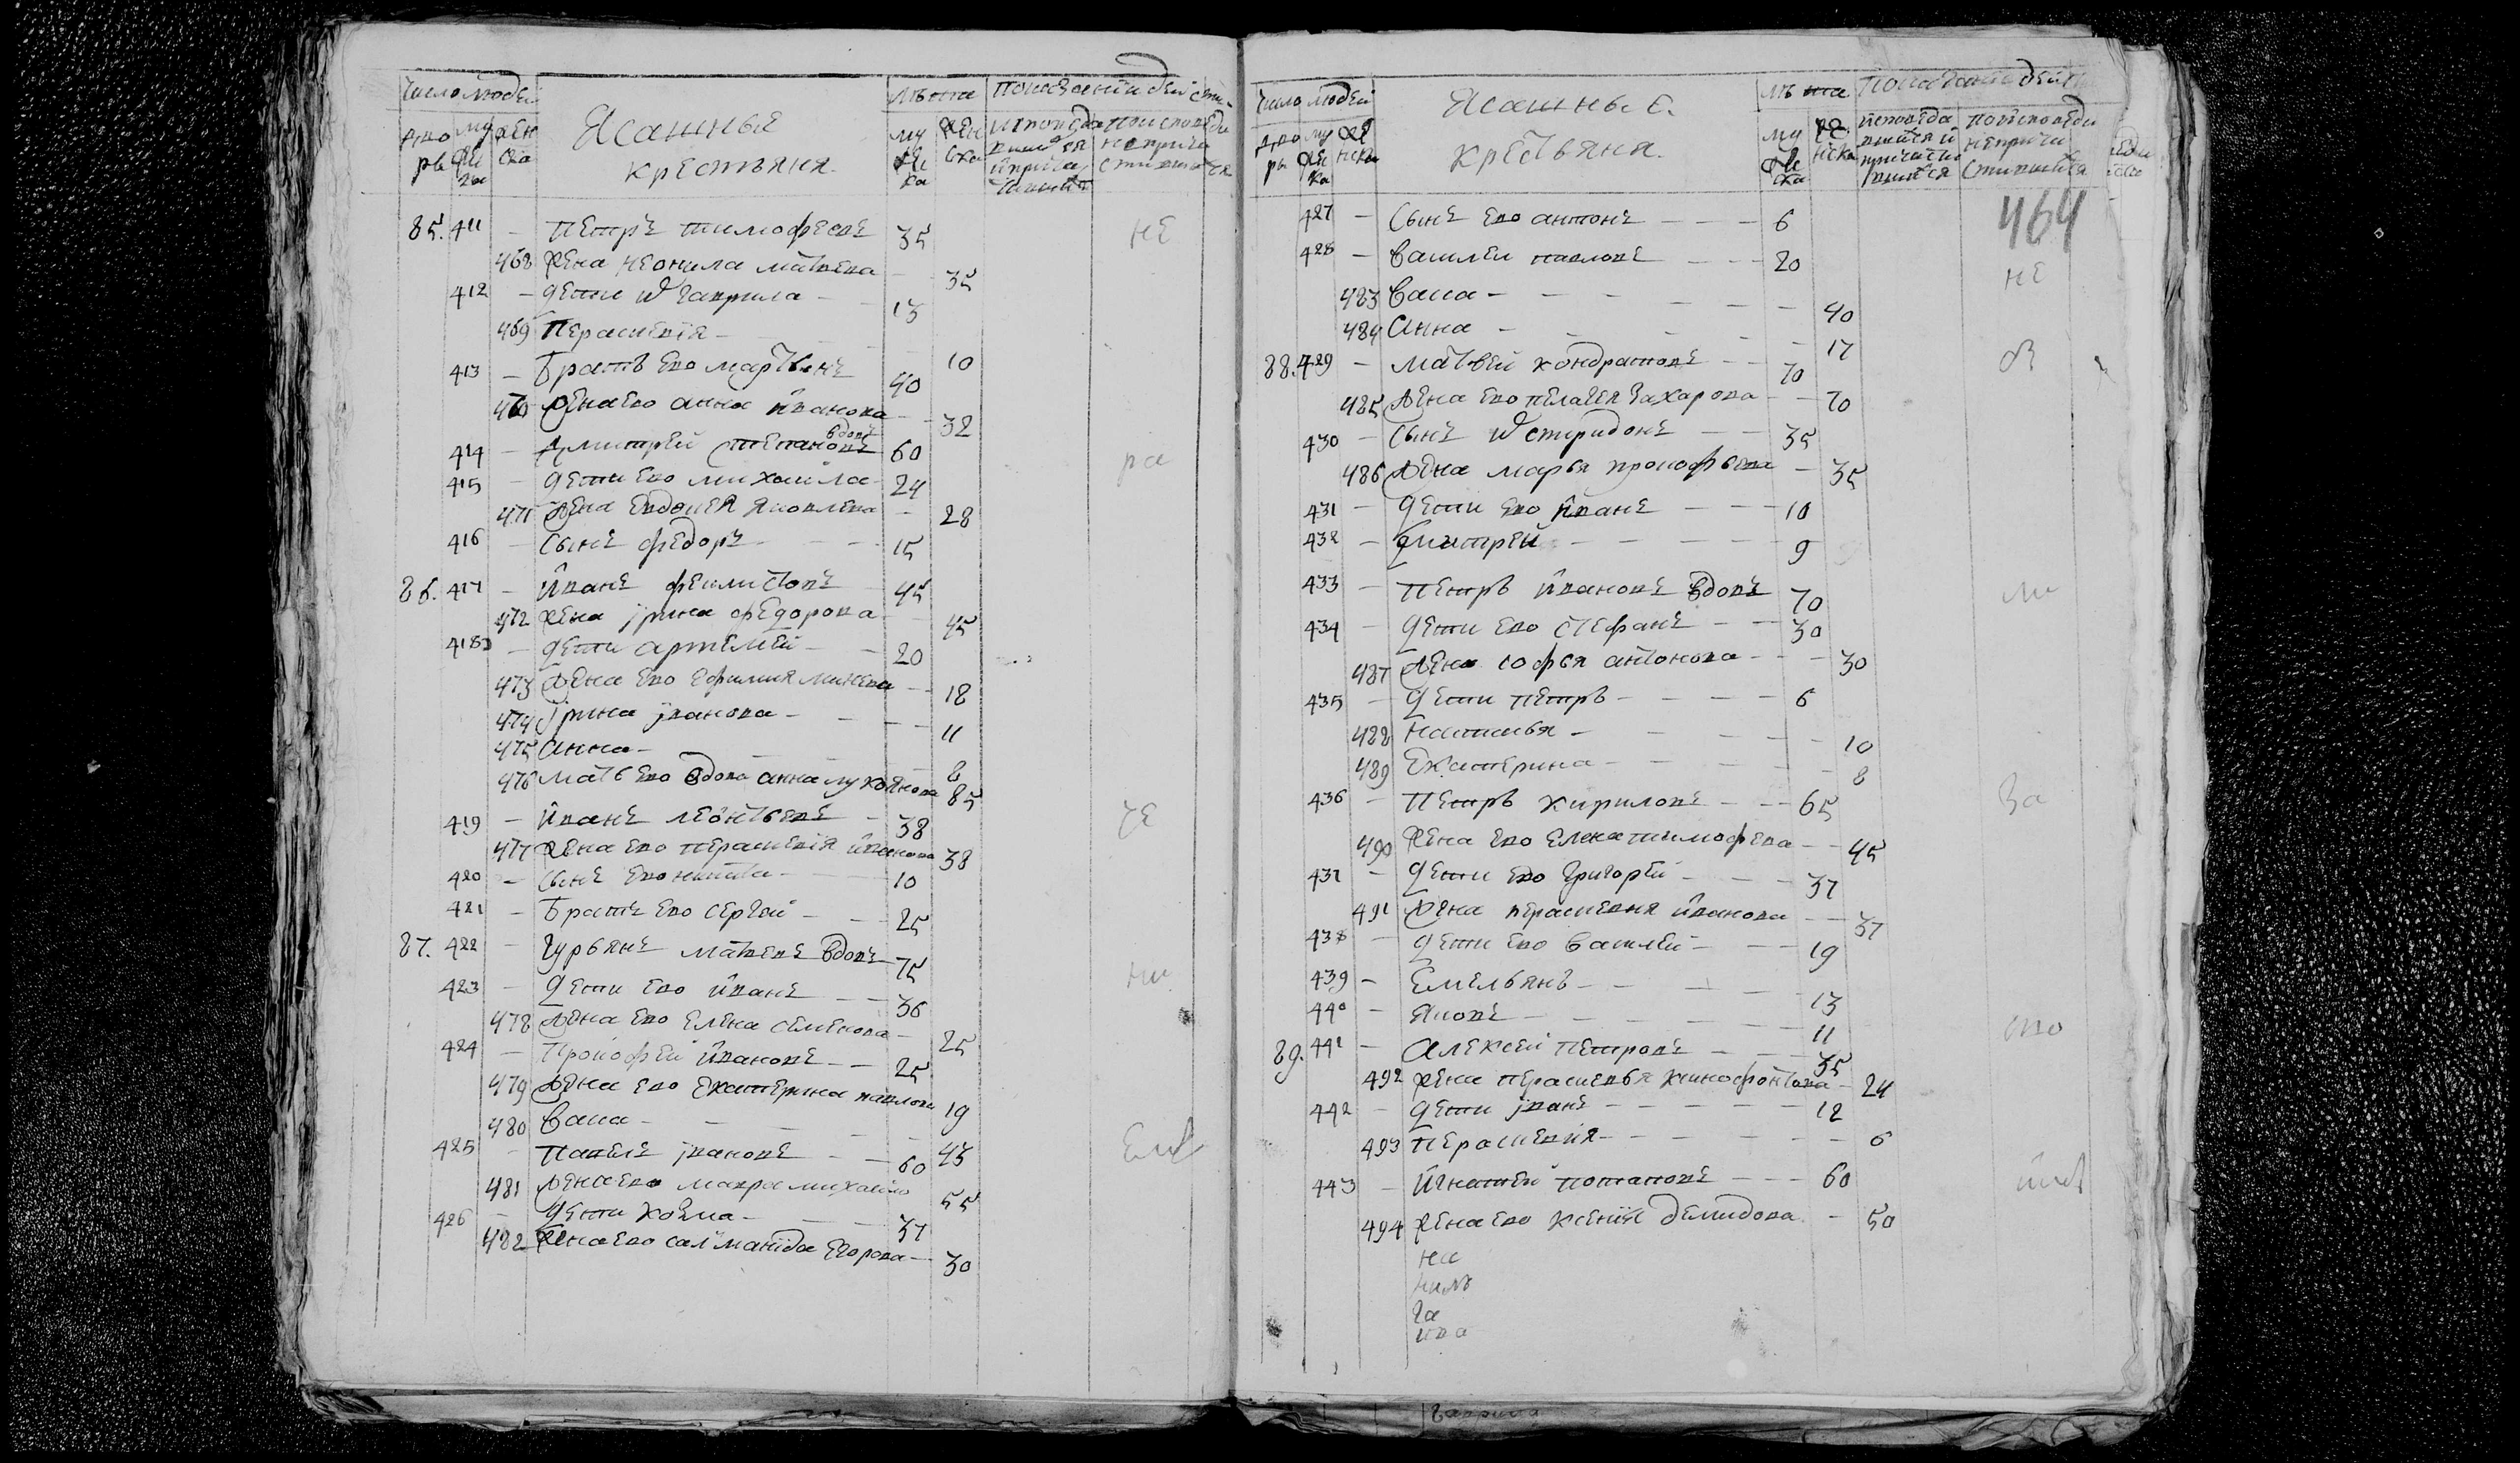 Число людей
Лѣта
Показаніи действ
дво
ры
му
же
ска
жен
ска
Ясашные
крестьяня.
му
же
ска
жен
ска
исповеда
вшiися
и прича
стившiися
по исповеди
не прича
стившiися
85. 411 – Петръ тимофеевъ 35 не
468 жена неонила матвева – 35
412 – дети іѡ гаврила – 13
469 Перасковія – 10
413 – Братъ ево мартынъ 40
470 жена ево анна иванова – 32
414 – дмитрей степановъ вдовъ 60 ра
415 – дети ево михаила 24
471 жена евдокея яковлева – 28
416 – сынъ федоръ – 15
86. 417 – иванъ феилистовъ 45
472 жена ирина федорова – 45
418 – дети артемей – 20
473 жена ево ефимия минева – 18
474 ирина іванова – – 11
475 анна – 8
476 мать ево вдова анна лукоянова 85
419 – иванъ леонтьевъ – 38 че
477 жена ево перасковія иванова 38
420 – сынъ ево никита – 10
421 – братъ ево сергей – 25
87. 422 – гурьянъ матвевъ вдовъ 75
423 – дети ево иванъ – 36 ни
478 жена ево елена семенова – 25
424 – Прокофей ивановъ – 25
479 жена ево екатерина павлова 19
480 васа – 43
425 – павелъ івановъ – 60
481 жена ево мавра михаило 55
426 – дети козма – 37
482 жена ево саломанида егорова – 30
Число людей
лѣта
Показаніи дейст
дво
ры
му
жен
ка
же
нска
Ясашные.
крестьяня.
му
же
ска
же
нска
исповеда
вшiися и
причасти
вшiися
по исповеди
не причи
стившiися
427 – сынъ ево антонъ – – – 6 464
428 – василей павловъ – – 20 не
483 васа – – – – 40
484 анна – – – – 17
88. 429 – матвей кондратовъ – 70
485 жена ево пелагея захарова – 70
430 – сынъ іѡ спиридонъ – – 35
486 жена марья прокофьева – 35
431 – дети ево иванъ – – 10
432 – дмитрей – – – – 9
433 – Петръ ивановъ вдовъ 70
434 – дети ево стефанъ – – 30
487 жена софья антонова – – 30
435 – дети петръ – – – – 6
488 наталья – – – – 10
489 екатерина – – – – 8
436 – Петръ кириловъ – – 65 за
490 жена ево елена тимофева – 45
437 – дети ево григорей – – 37
491 жена перасковия иванова – 37
438 – дети ево василей – – 19
439 – емельянъ – – – 13
440 – яковъ – – – – 11
89. 441 – алексей петровъ – – 35
492 жена перасковья ксинофонтова – 24
442 – дети іванъ – – – – 12
493 перасковия – – – – 6
443 – игнатей потаповъ – – – 60
494 жена ево ксения демидова – 50
на
га
ива
гаврила